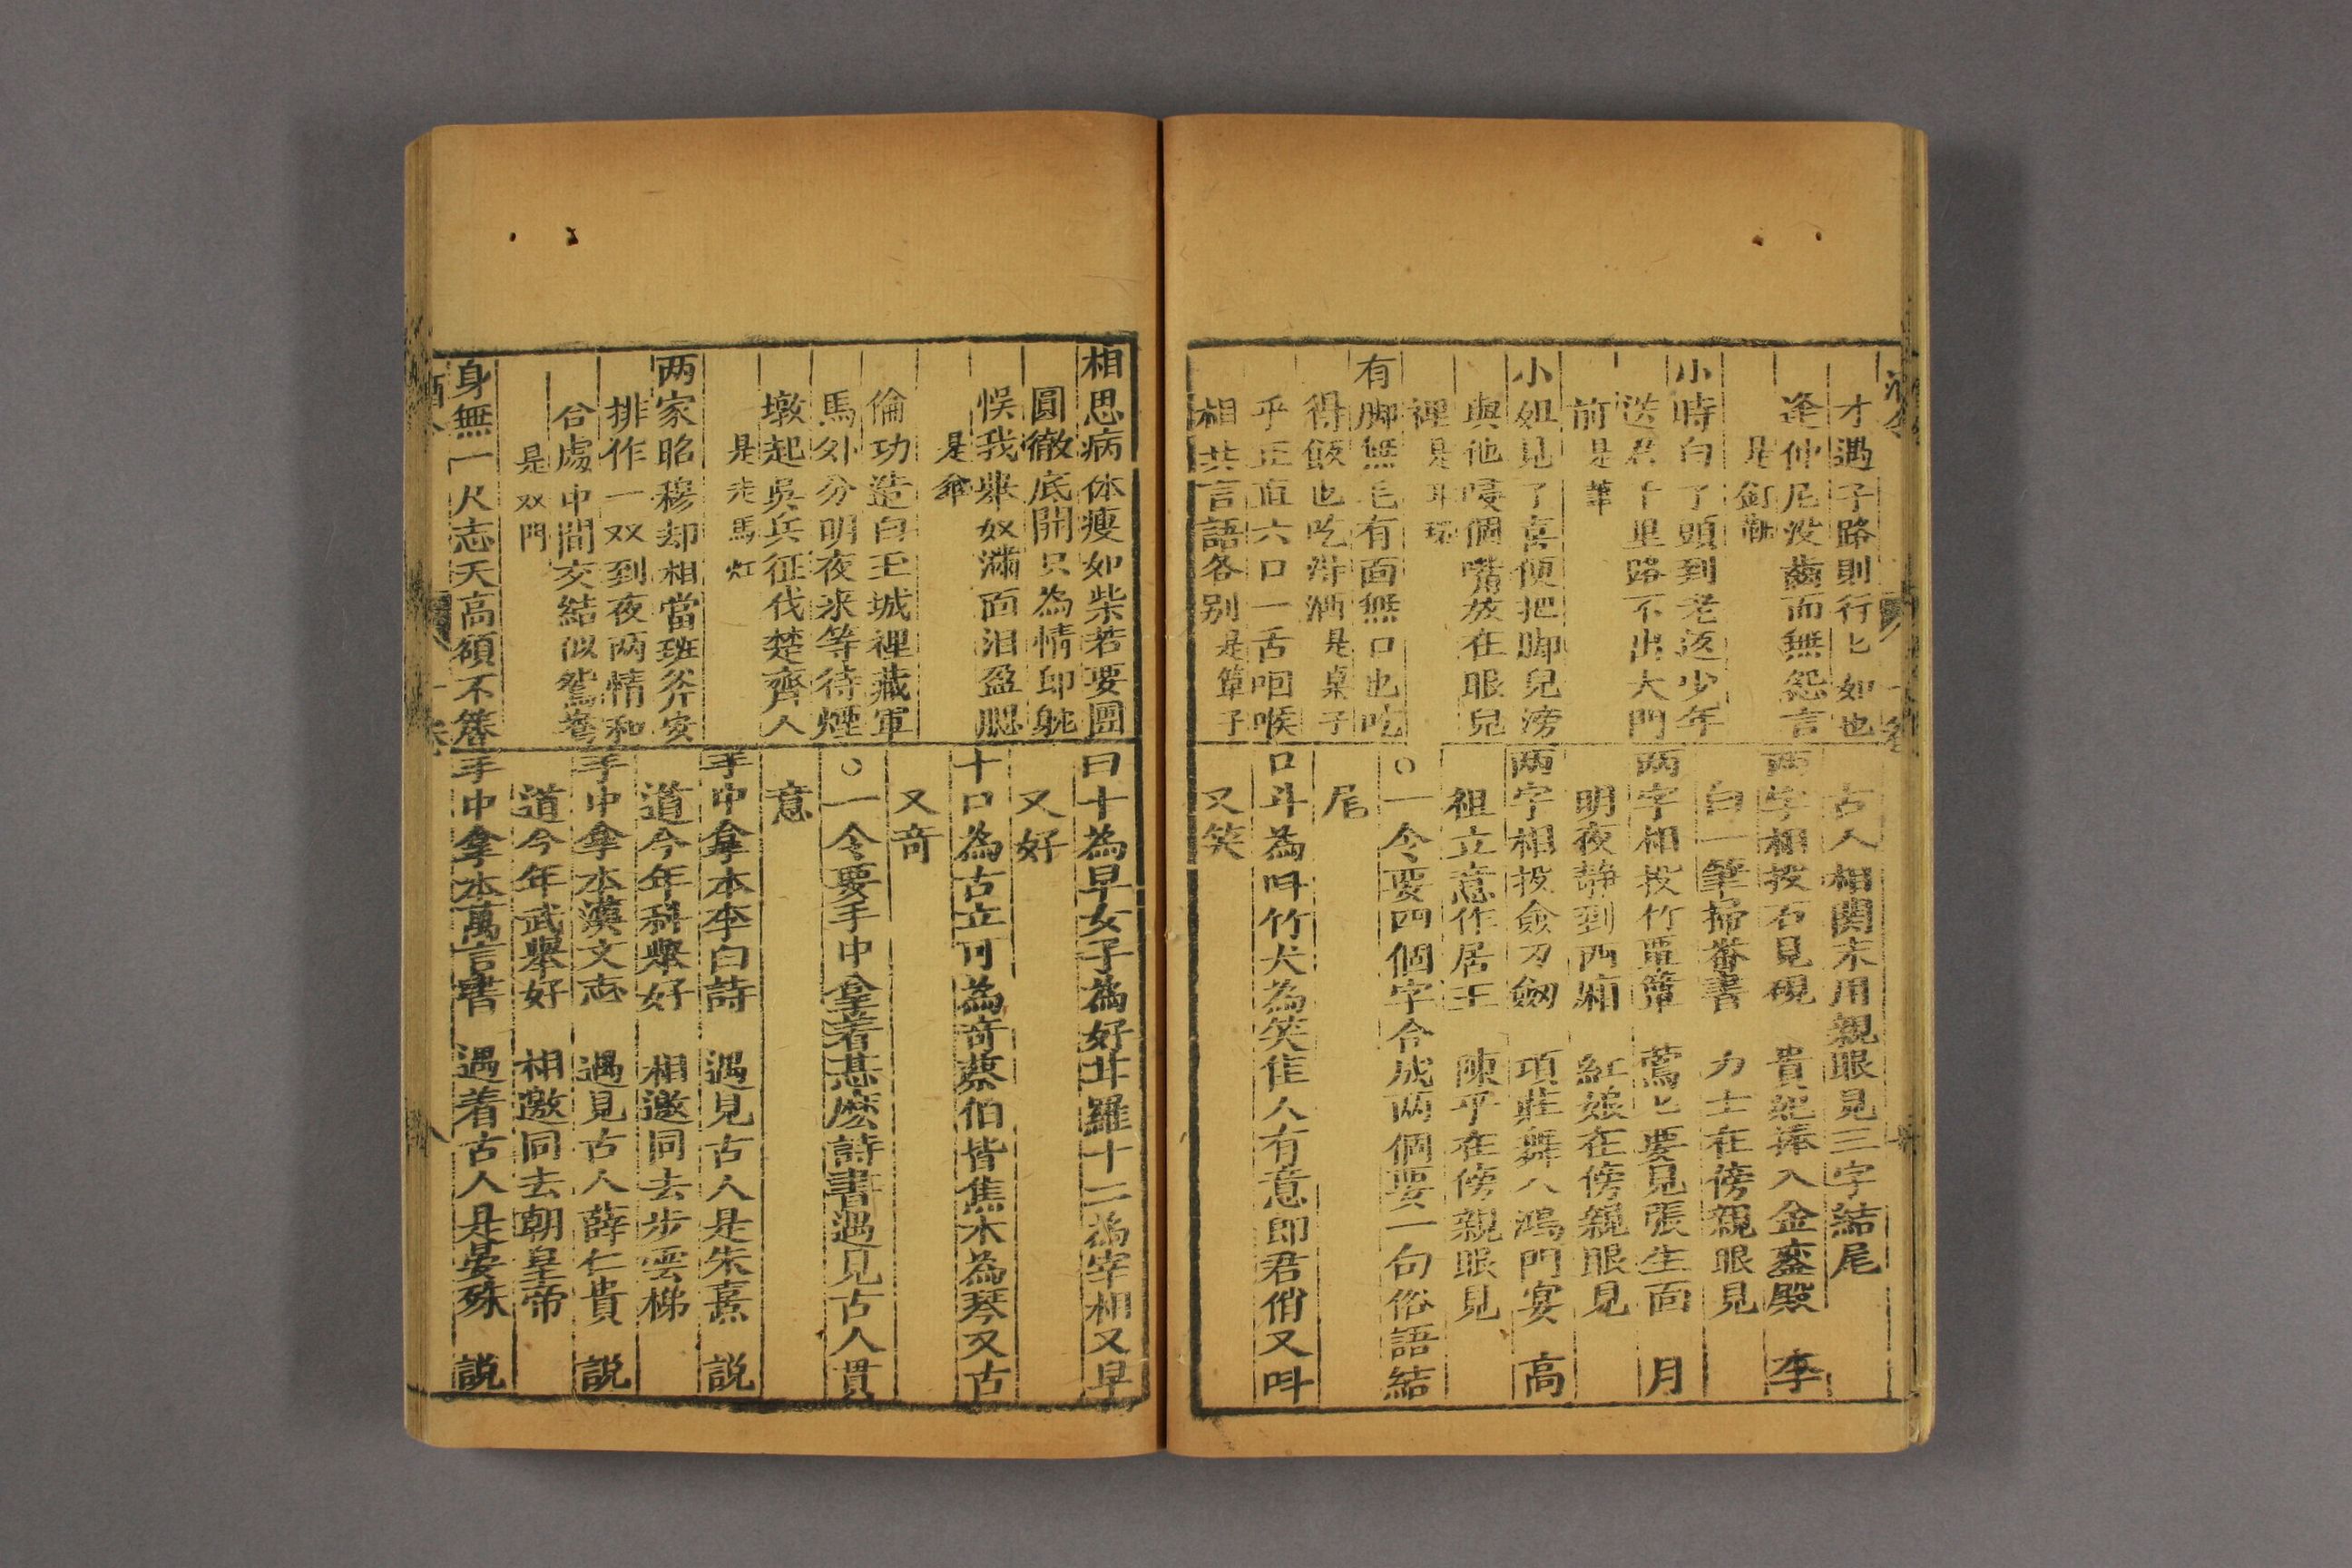 才遇子路則行匕如也
逢仲尼没齒而無怨言
是釘靴
小時白了頭到老返少年
送君千里路不出大門
前是筆
小姐見了喜便把脚兒滂
與他嗳個嘴放在眼兒
裡是耳环
有脚無毛有面無口也吃
得飯也吃得酒是桌子
乎正直六口一舌咽喉
相共言語各别是簞子
古人相関末用親眼見三字結尾
两字相投石見硯 貴妃捧入金鑾殿 李
白一筆掃畨書 力士在傍親眼見
两字相投竹覃簟 鶯匕要見張生面 月
明夜静到西廂 紅娘在傍親眼見
两字相投僉刀劔 項莊舞入鴻門宴 高
祖立意作居王 陳平在傍親眼見
○一令要四個字合成两個要一句俗語結
尾
口斗為呌竹犬為笑隹人有意即君俏又呌
又笑
相思病体瘦如柴若要團
圓徹底開只為情郎躭
悞我舉奴滿面泪盈腮
是傘
倫功造白玉城裡藏軍
馬外分明夜来等待煙
墩起吳兵征伐楚齊人
是走馬灯
两家昭穆却相當班斧安
排作一双到夜两情和
合處中間交結似鴛鴦
是双門
身無一尺志天高頭不簪
曰十為早女子為好甘羅十二為宰相又早
又好
十口為古立可為竒蔡伯皆焦木為琴又古
又竒
○一令要手中拿着甚麽詩書遇見古人貫
意
手中拿本李白詩 遇見古人是朱熹 説
道今年科舉好 相邀同去步雲梯
手中拿本漢文志 遇見古人薛仁貴 説
道今年武舉好 相邀同去朝皇帝
手中拿本萬言書 遇着古人是晏殊 説